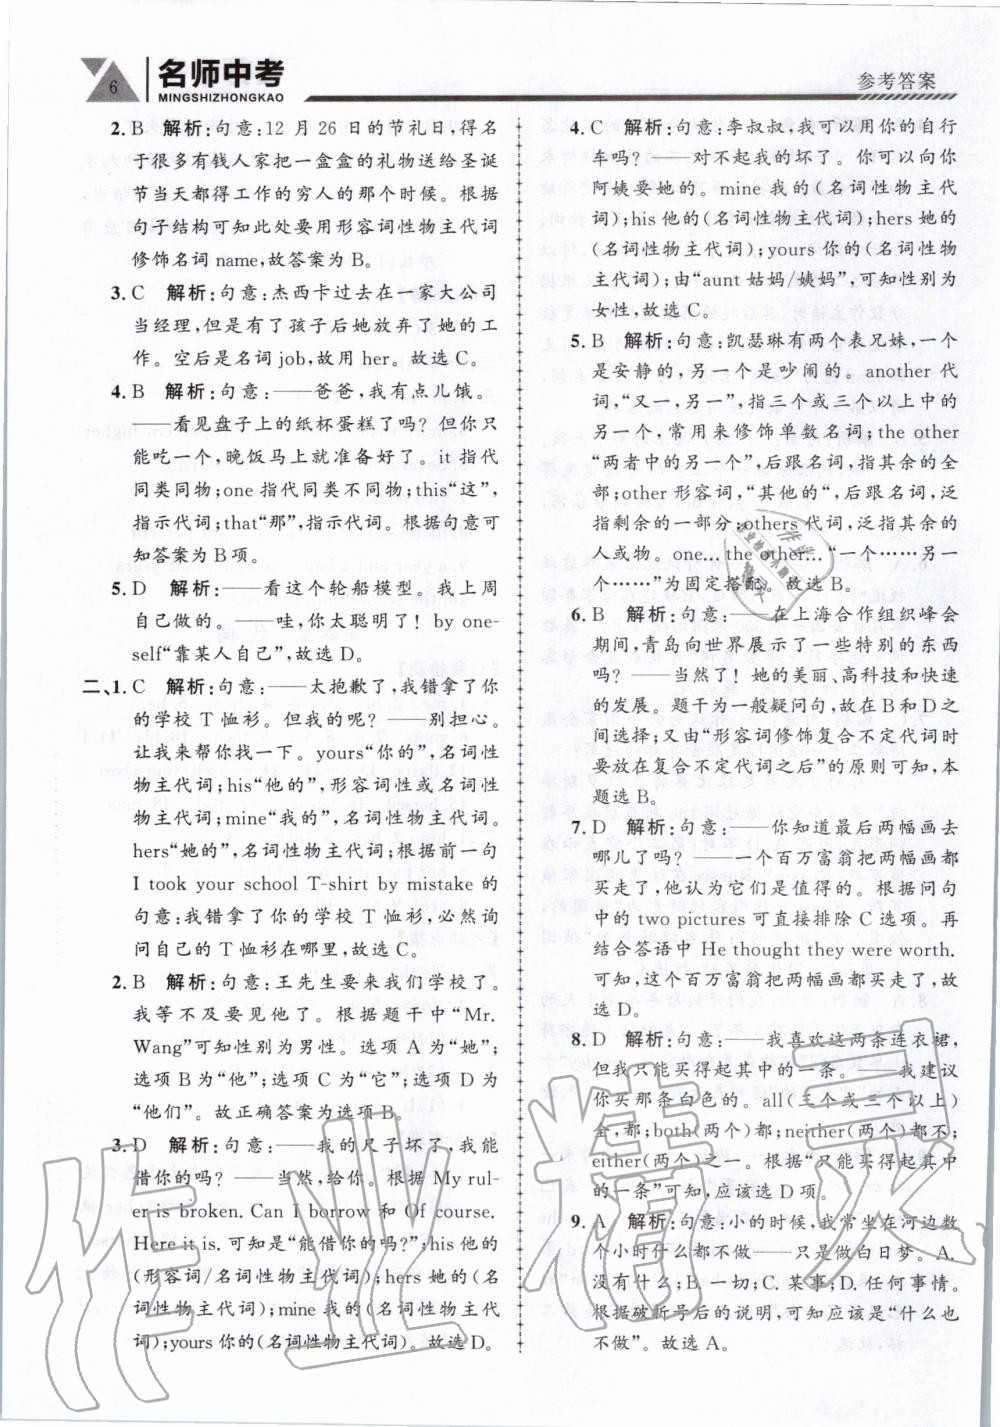 6
名师中考
MINGSHIZHONGKAO
参考答案
2. B　解析:句意:12 月 26 日的节礼日,得名
了很多有钱人家把一盒盒的礼物送给圣诞
节当天都得工作的穷人的那个时候。根据
句子结构可知此处要用形容词性物主代词
修饰名词 name,故答案为 B。
3. C　解析:句意:杰西卡过去在一家大公司
当经理,但是有了孩子后她放弃了她的工
作。空后是名词 job,故用 her。故选 C。
4. B　解析:句意:——爸爸,我有点儿饿。
——看见盘子上的纸杯蛋糕了吗? 但你只
能吃一个,晚饭马上就准备好了。it 指代
同类同物;one 指代同类不同物;this“这”,
指示代词;that“那”,指示代词。根据句意可
知答案为 B 项。
5. D　解析:——看这个轮船模型。我上周
自己做的。——哇,你太聪明了! by one-
self“靠某人自己”,故选 D。
二、1. C　解析:句意:——太抱歉了,我错拿了你
的学校 T 恤衫。但我的呢? ——别担心。
让我来帮你找一下。yours“你的”,名词性
物主代词;his“他的”,形容词性或名词性
物主代词;mine“我的”,名词性物主代词。
hers“她的”,名词性物主代词;根据前一句
I took your school T-shirt by mistake 的
句意:我错拿了你的学校 T 恤衫,必然询
问自己的 T 恤衫在哪里,故选 C。
2. B　解析:句意:王先生要来我们学校了。
我等不及要见他了。根据题干中“Mr.
Wang”可知性别为男性。选项 A 为“她”;
选项 B 为“他”;选项 C 为“它”;选项 D 为
“他们”。故正确答案为选项 B。
3. D　解析:句意:——我的尺子坏了,我能
借你的吗? ——当然,给你。根据 My rul-
er is broken. Can I borrow 和 Of course.
Here it is. 可知是“能借你的吗?”;his 他的
(形容词/名词性物主代词);hers 她的(名
词性物主代词);mine 我的(名词性物主代
词);yours 你的(名词性物主代词)。故选 D。
4. C　解析:句意:——李叔叔,我可以用你的自行
车吗? ——对不起我的坏了。你可以向你
阿姨要她的。mine 我的(名词性物主代
词);his 他的(名词性物主代词);hers 她的
(名词性物主代词);yours 你的(名词性物
主代词);由“aunt 姑妈/姨妈”,可知性别为
女性,故选 C。
5. B　解析:句意:凯瑟琳有两个表兄妹,一个
是安静的,另一个是吵闹的。another 代
词,“又一,另一”,指三个或三个以上中的
另一个,常用来修饰单数名词;the other
“两者中的另一个”,后跟名词,指其余的全
部;other 形容词,“其他的“,后跟名词,泛
指剩余的一部分;others 代词,泛指其余的
人或物。one… the other…“一个……另一
个……”为固定搭配。故选 B。
6. B　解析:句意:——在上海合作组织峰会
期间,青岛向世界展示了一些特别的东西
吗? ——当然了! 她的美丽、高科技和快速
的发展。题干为一般疑问句,故在 B 和 D 之
间选择;又由“形容词修饰复合不定代词时
要放在复合不定代词之后”的原则可知,本
题选 B。
7. D　解析:句意:——你知道最后两幅画去
哪儿了吗? ——一个百万富翁把两幅画都
买走了,他认为它们是值得的。根据问句
中的 two pictures 可直接排除 C 选项。再
结合答语中 He thought they were worth.
可知,这个百万富翁把两幅画都买走了,故
选 D。
8. D　解析:句意:——我喜欢这两条连衣裙,
但我只能买得起其中的一条。——我建议
你买那条白色的。all(三个或三个以上)
全,都;both(两个)都;neither(两个)都不;
either(两个)之一。根据“只能买得起其中
的一条”可知,应该选 D 项。
9. A　解析:句意:小的时候,我常坐在河边数
个小时什么都不做——只是做白日梦。A.
没有什么;B. 一切;C. 某事;D. 任何事情。
根据破折号后的说明,可知应该是“什么也
不做”。故选 A。
作业精灵